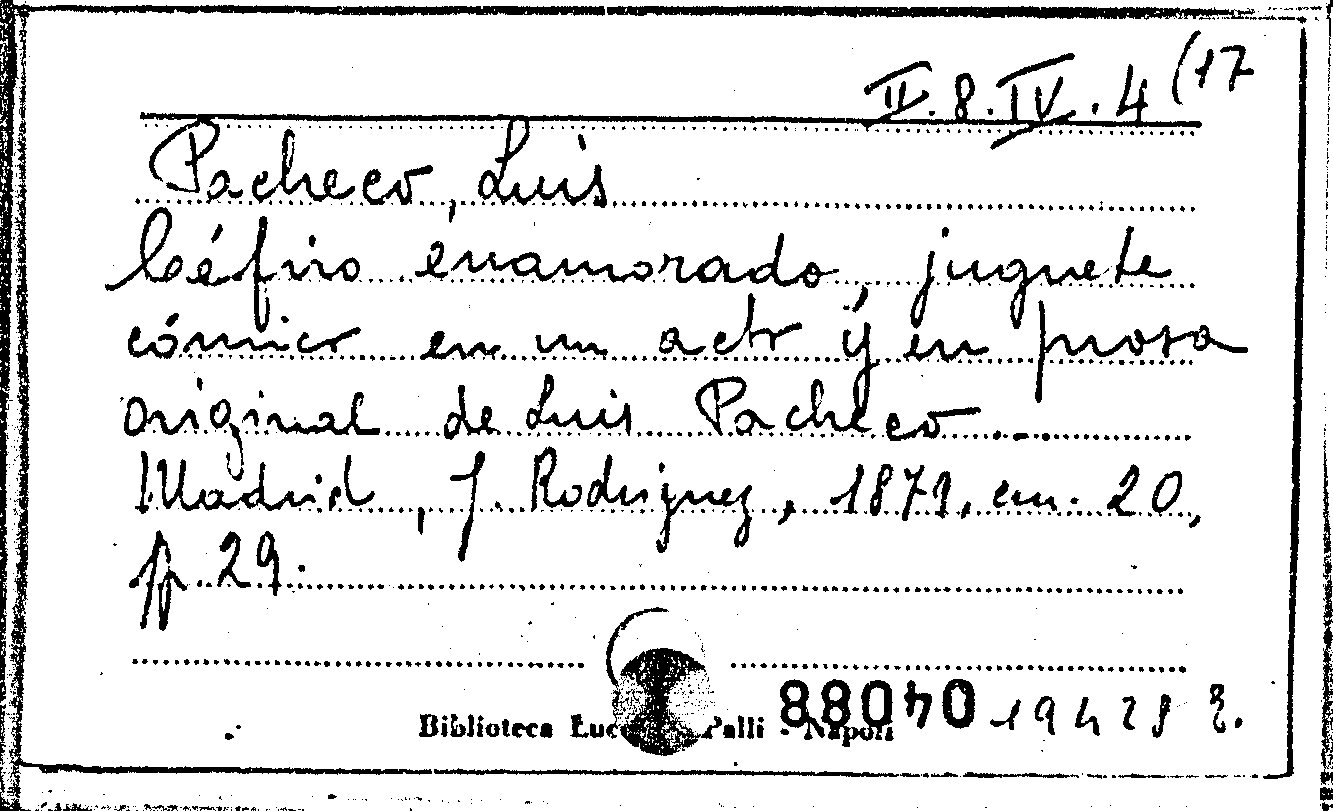 II.8.IV.4(17
Pacheco, Luis
Céfiro enamorado, juguete
cómico en un acto y en prosa
original de Luis Pacheco...
Madrid, J. Rodriguez, 1879, cm. 20,
pp. 29.
Biblioteca Palli - Napoli
04088